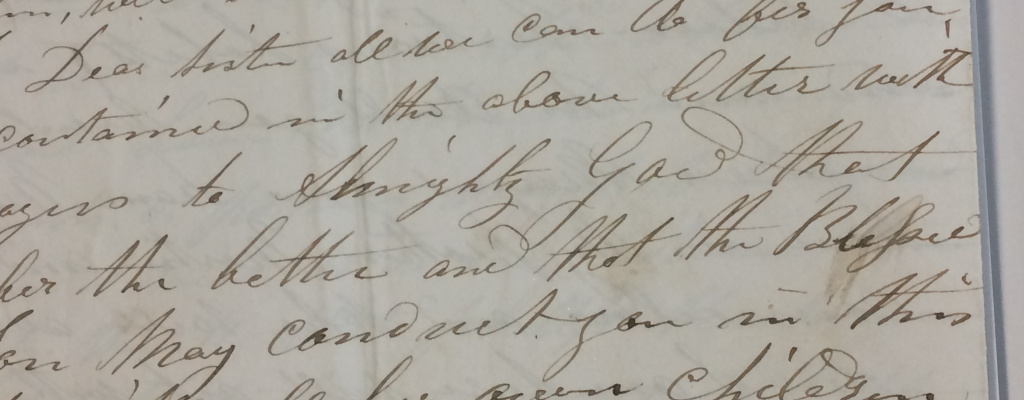 Dear sister all we can do for you,
contained in the above letter with
to Almighty God that
her the better and that the Blessed
on May conduct you in this
own children